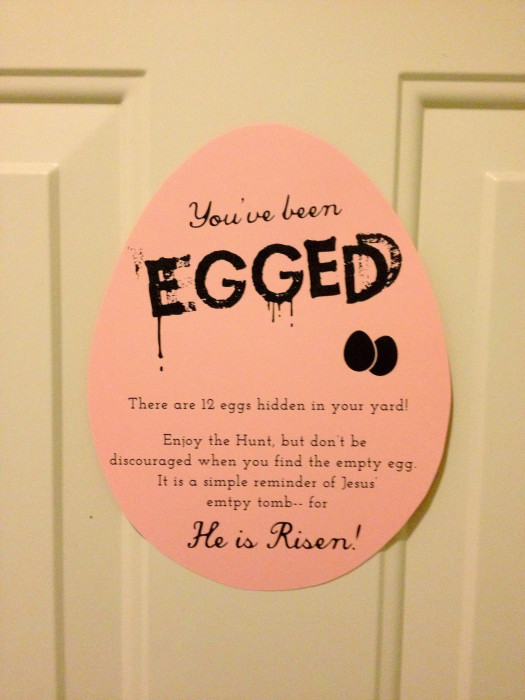 You've been
EGGED
There are 12 eggs hidden in your yard!
Enjoy the Hunt, but don't be
discouraged when you find the empty egg.
It is a simple reminder of Jesus'
emtpy tomb-- for
He is Risen!